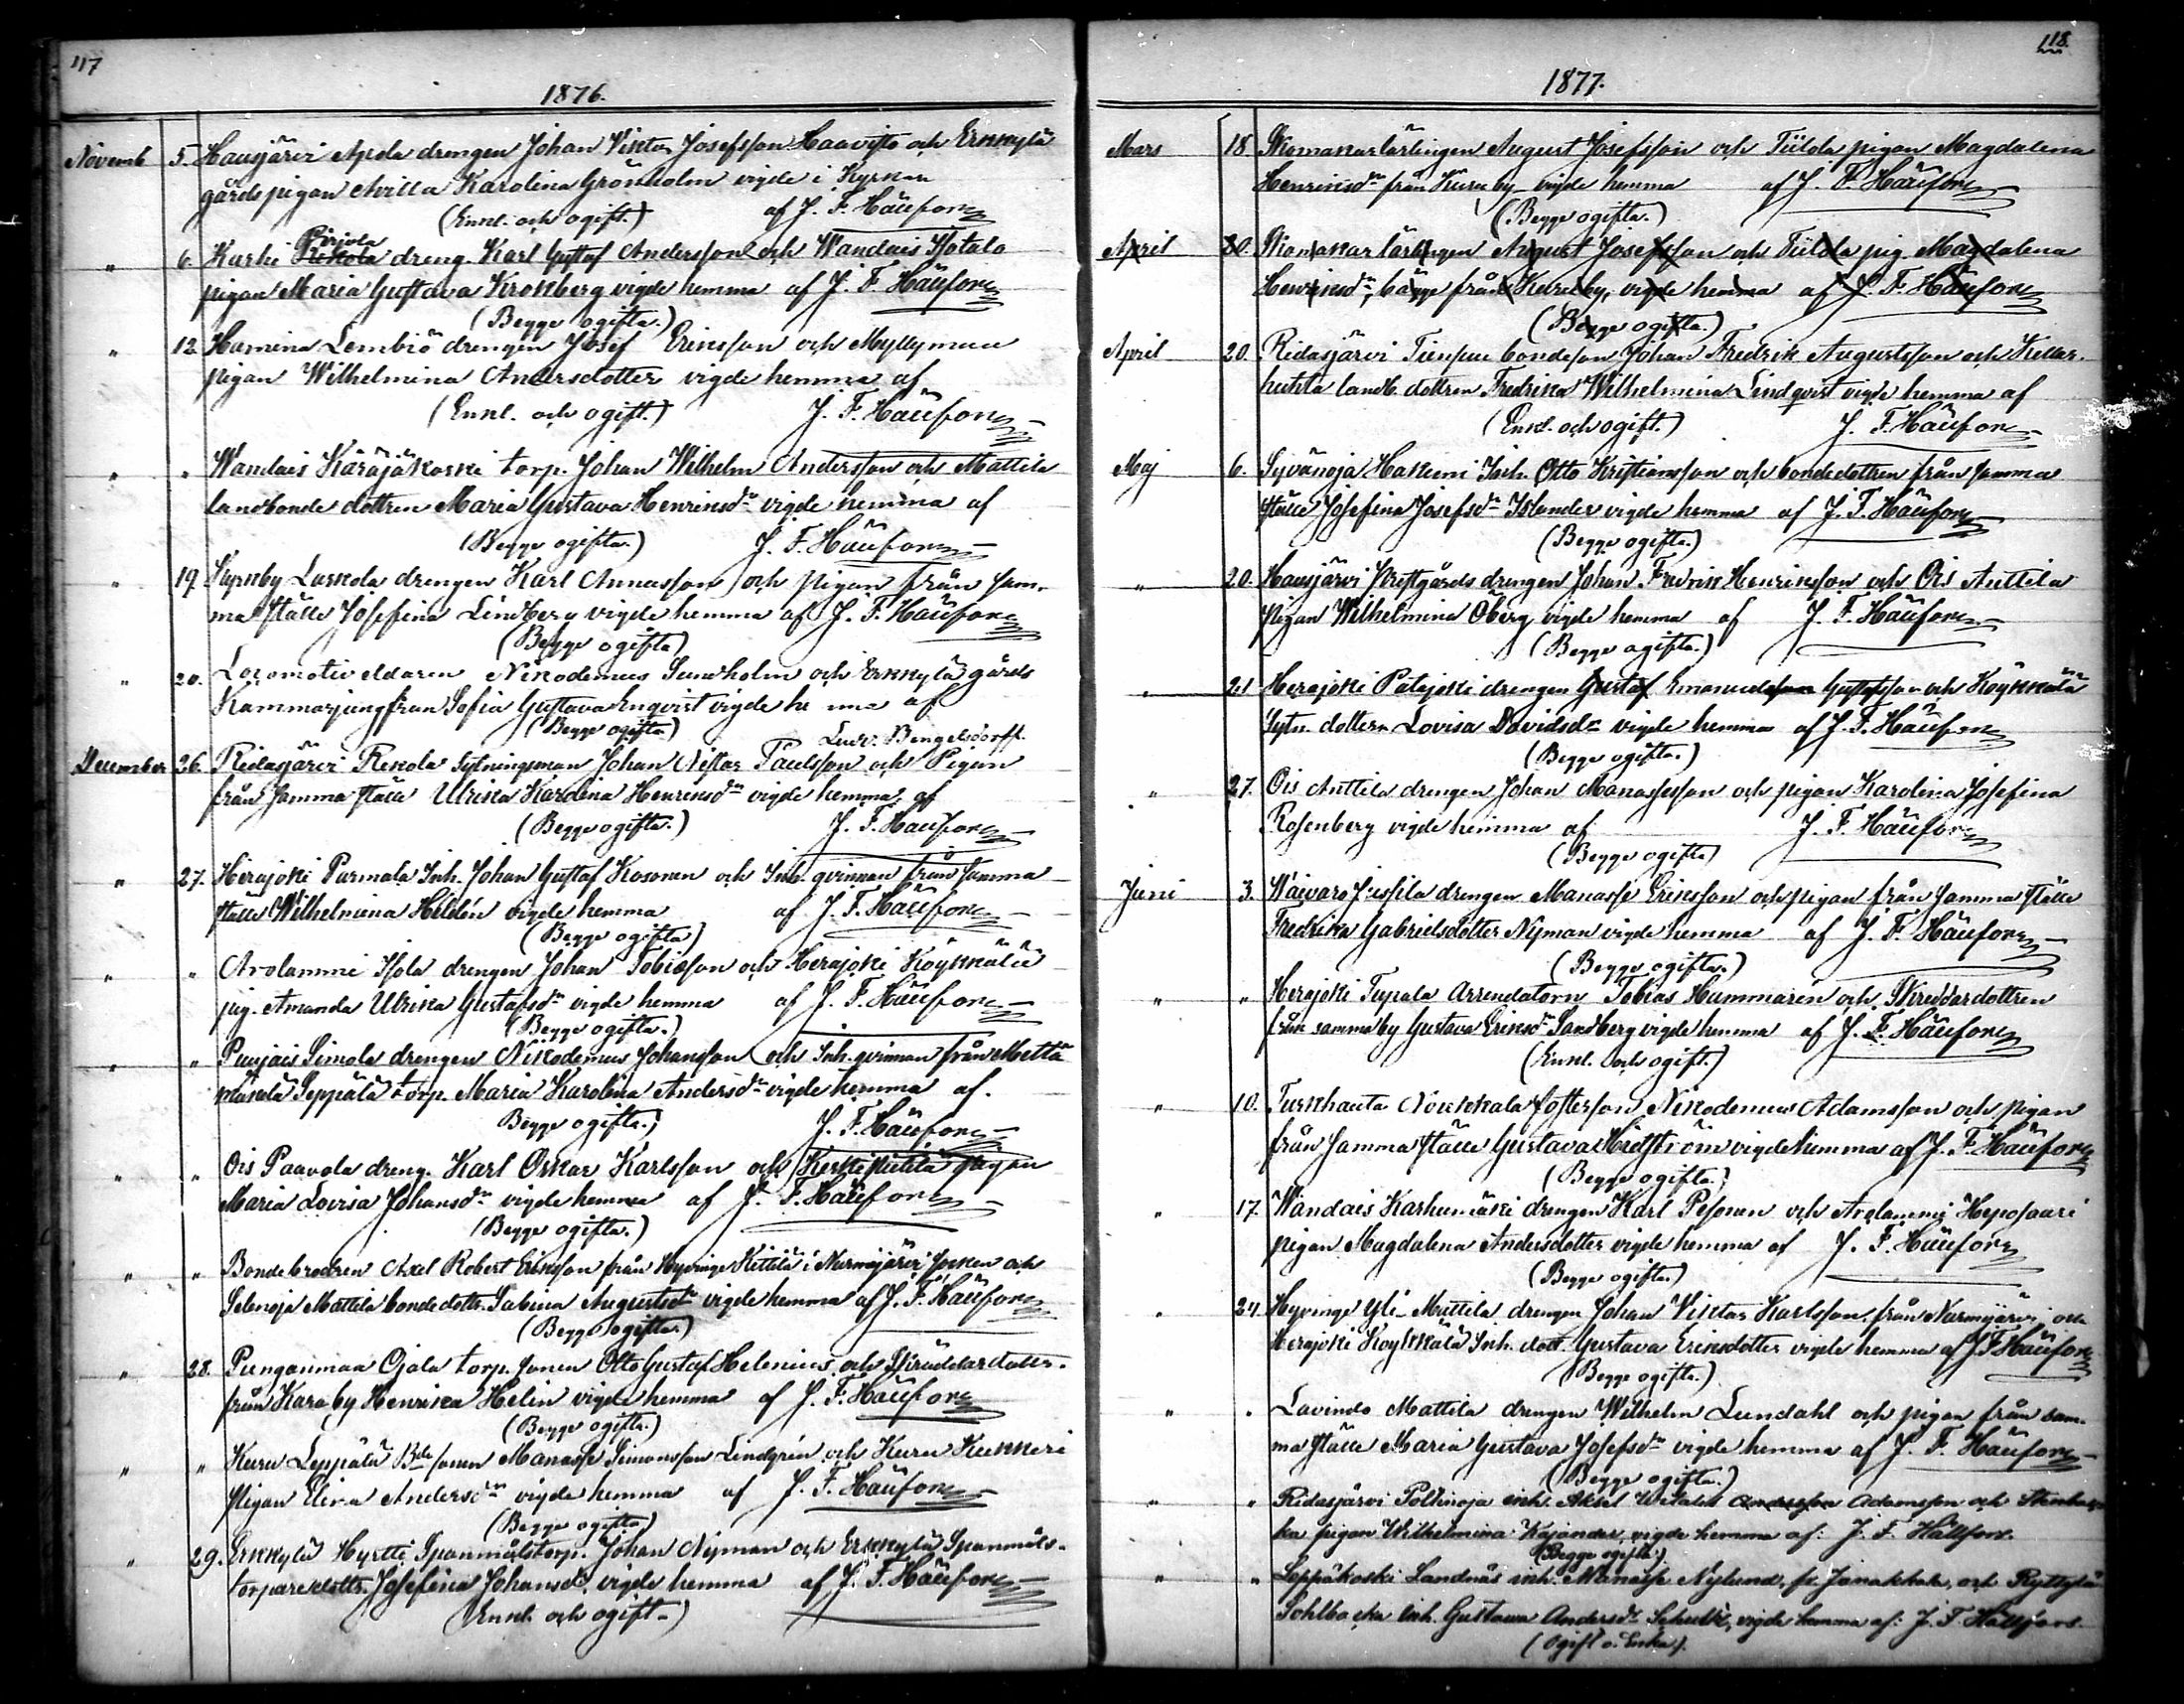 117
1876.
Novemb. 5. Hausjärvi Arola drengen Johan Viktor Josefsson Haavisto och Erkkylä
gårds pigan Milla Karolina Grönholm vigde i Kyrkan
(Enkl. och ogift.) af J. F. Hällfors
" 6. Karhi Rekola Pirjola dreng. Karl Gustaf Andersson och Wandais Hotala
pigan Maria Gustava Kronberg vigde hemma af J. F. Hällfors
(Begge ogifta.)
" 12. Hamina Lembiö drengen Josef Eriksson och Myllymaa
pigan Wilhelmina Andersdotter vigde hemma af
(Enkl. och ogift.) J. F. Hällfors
" " Wandais Käräjäkoski torp. Johan Wilhelm Andersson och Mattila
landbonde dottren Maria Gustava Henriksdr vigde hemma af
(Begge ogifta.) J. F. Hällfors
" 19. Kyrkby Laskola drengen Karl Annasson och pigan från sam-
ma ställe Josefina Lindberg vigde hemma af J. F. Hällfors
(Begge ogifta)
" 20. Locomotiv eldaren Nikodemus Sundholm och Erkkylä gårds
Kammarjungfrun Sofia Gustava Enqvist vigde hemma af
(Begge ogifta.) Ludv. Bengelsdorff.
December 26. Ridasjärvi Rekola Sytningsman Johan Nestor Paulsson och Pigan
från samma ställe Ulrika Karolina Henriksdr vigde hemma af
(Begge ogifta.) J. F. Hällfors
" 27. Herajoki Purmala Inh. Johan Gustaf Kosonen och Inh. qvinnan från samma
ställe Wilhelmina Heldén vigde hemma af J. F. Hällfors
(Begge ogifta)
" " Arolammi Isola drengen Johan Tobiasson och Herajoki Köykkälä
pig. Amanda Ulrika Gustafsdr vigde hemma af J. F. Hällfors
(Begge ogifta.)
" " Puujais Simola drengen Nikodemus Johansson och Inh. qvinnan från Mettä
kylä Seppälä torp. Maria Karolina Andersdr vigde hemma af.
Begge ogifta.) J. F. Hällfors
" " Ois Paavola dreng. Karl Oskar Karlsson och pigan
Maria Lovisa Johansdr vigde hemma af J. F. Hällfors
(Begge ogifta.)
" " Bondebrodren Axel Robert Eriksson från Hyvinge Kittilä i Nurmijärvi Socken och
Selenoja Mattila bondedottr. Sabina Augustsdr vigde hemma af J. F. Hällfors
(Begge ogifta.)
" 28. Punganmaa Ojala torp. sonen Otto Gustaf Helenius och Skräddardottr.
från Karaby Henrika Helin vigde hemma af J. F. Hällfors
(Begge ogifta.)
" " Kuru Leppälä Bde sonen Manasse Simonsson Lindgrén och Kuru Kukkeri
Pigan Elina Andersdr vigde hemma af J. F. Hällfors
(Begge ogifta)
" 29. Erkkylä Hyrtti Spanmålstorp. Johan Nyman och Erkkylä Spanmåls-
torparedottr. Josefina Johansdr, vigde hemma af J. F. Hällfors
(Enkl. och ogift.)
118.
1877.
Mars 18. Skomakarlärlingen August Josefsson och Tiilola pigan Magdalena
Henriksdr från Kuru by vigde hemma af J. F. Hällfors
(Begge ogifta.)
April 20. Skomakar lärlingen August Josefsson och Tiilola pig. Magdalena
Henriksdr, bägge från Kuru by, vigde hemma af J. F. Hällfors
(Begge ogifta.)
April 20. Ridasjärvi Tienpuu bondeson Johan Fredrik Augustsson och Keller-
huhta landb. dottren Fredrika Wilhelmina Lindqvist vigde hemma af
(Enkl. och ogift.) J. F. Hällfors
Maj 6. Syvänoja Hakuni Inh. Otto Kristiansson och bondedottren från samma
ställe Josefina Josefsdr Islander vigde hemma af J. F. Hällfors
(Begge ogifta.)
" 20. Hausjärvi Prestgårds drengen Johan Fredrik Henriksson och Ois Anttila
pigan Wilhelmina Öberg vigde hemma af J. F. Hällfors
(Begge ogifta.)
" 21. Herajoki Patajoki drengen Gustaf Emanuelsson Gustafsson och Köykkälä
Sytn. dottern Lovisa Davidsdr vigde hemma af J. F. Hällfors
(Begge ogifta.)
" 27. Ois Anttila drengen Johan Manassesson och pigan Karolina Josefina
Rosenberg vigde hemma af J. F. Hällfors
(Begge ogifta)
Juni 3. Waivaro Jussila drengen Manasse Eriksson och pigan från samma ställe
Fredrika Gabrielsdotter Nyman vigde hemma af J. F. Hällfors
(Begge ogifta.)
" " Herajoki Tupala Arrendatorn Tobias Hammarén och Skreddardottren
från samma by Gustava Eriksdr Sandberg vigde hemma af J. F. Hällfors
(Enkl. och ogift.)
" 10. Turkhauta Noukkala fosterson Nikodemus Adamsson och pigan
från samma ställe Gustava Hidström vigde hemma af J. F. Hällfors
(Begge ogifta.)
" 17. Wandais Karhumäki drengen Karl Pesonen och Arolammi Heposaari
pigan Magdalena Andersdotter vigde hemma af J. F. Hällfors
(Begge ogifta.)
" 24. Hyvinge Yli-Mattila drengen Johan Viktor Karlsson från Nurmijärvi och
Herajoki Köykkälä Inh. dott. Gustava Eriksdotter vigde hemma af J. F. Hällfors
(Begge ogifta.)
" " Lavindo Mattila drengen Wilhelm Lundahl och pigan från sam-
ma ställe Maria Gustava Josefsdr vigde hemma af J. F. Hällfors
(Begge ogifta.)
" " Ridasjärvi Poltinoja inh. Aksel Witalis Andersson Adamsson och
ka pigan Wilhelmina Kajander, vigde hemma af: J. F. Hällfors.
(Begge ogifta.)
" " Leppäkoski Landnäs inh. Manasse Nylund, fr. Janakkala, och Ryttylä
Sohlbacka Inh. Gustava Andersdr Schultz, vigde hemma af: J. F. Hällfors.
(Ogift o. Enka).